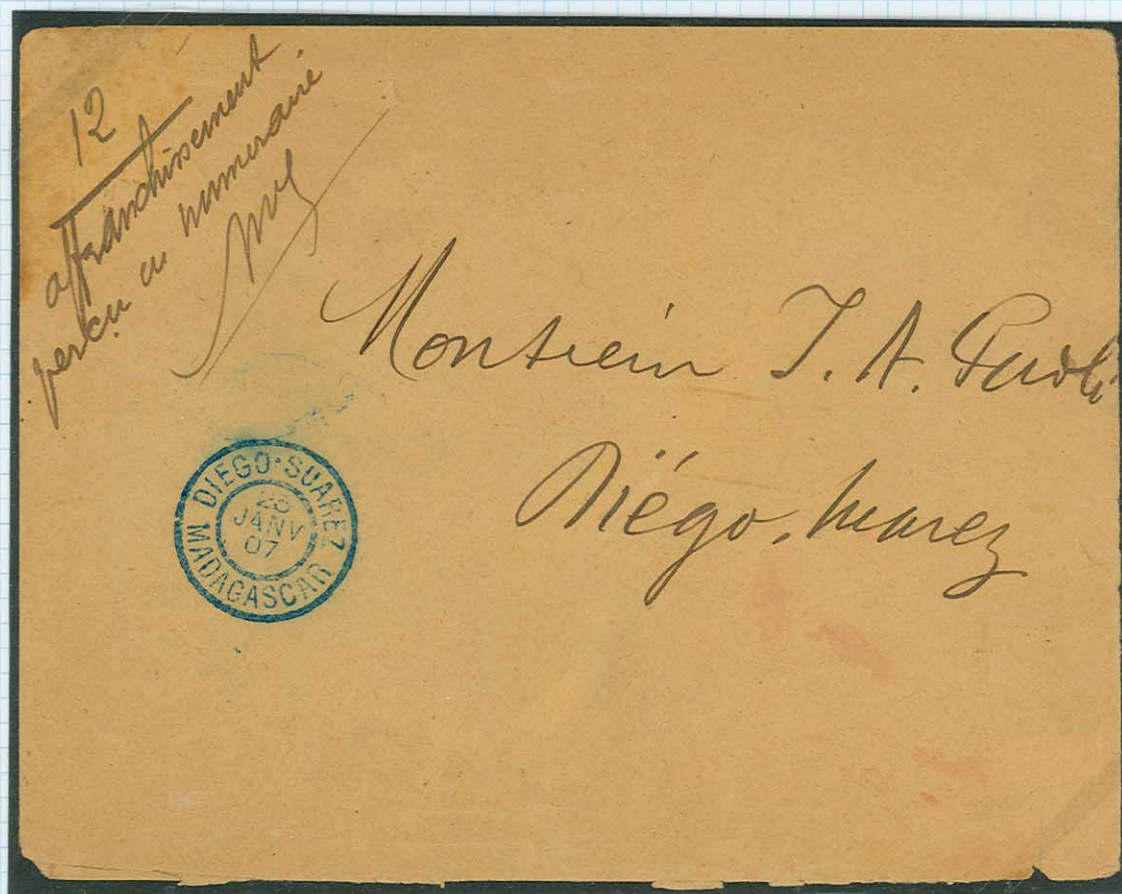 12
affranchissement
perçu en numeraire
Monsieur J. A. Paoli
Diégo, Suarez
DIEGO-SUAREZ
25
JANV
07
MADAGASCAR